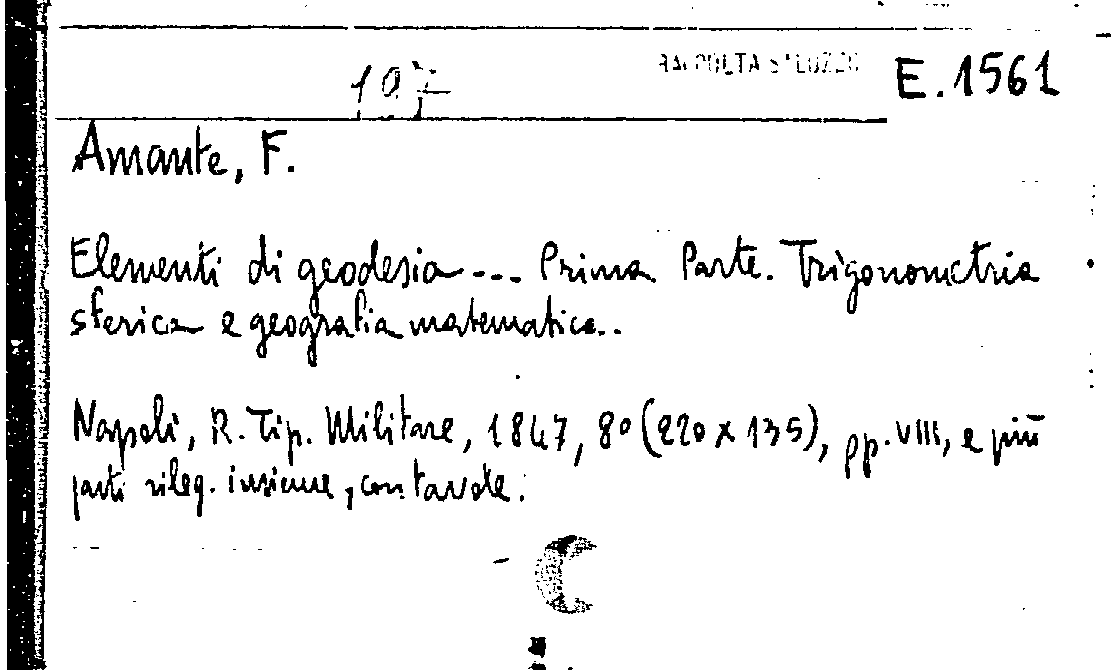 197 RACCOLTA SALUZZO E.1561
Amante, F.
Elementi di geodesia --- Prima Parte. Trigonometria
sferica e geografia matematica..
Napoli, R. Tip. Militare, 1847, 8º (220 x 135), pp. VIII, e più
parti rileg. insieme, con tavole.